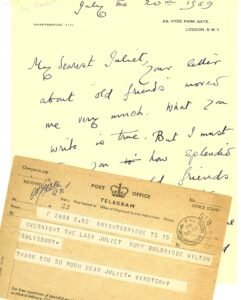 July the 20th 1959
KNIGHTSBRIDGE
28, HYDE PARK GATE,
LONDON, S.W.7.
My dearest Juliet,
Your letter
about "old friends" moved
me very much. What you
write is true. But I must
how splendid
friends
POST OFFICE
TELEGRAM
Charges to pay
RECEIVED
OVERNIGHT THE LADY JULIET DUFF BULBRIDGE WILTON
SALISBURY=
THANK YOU SO MUCH DEAR JULIET= WINSTON+